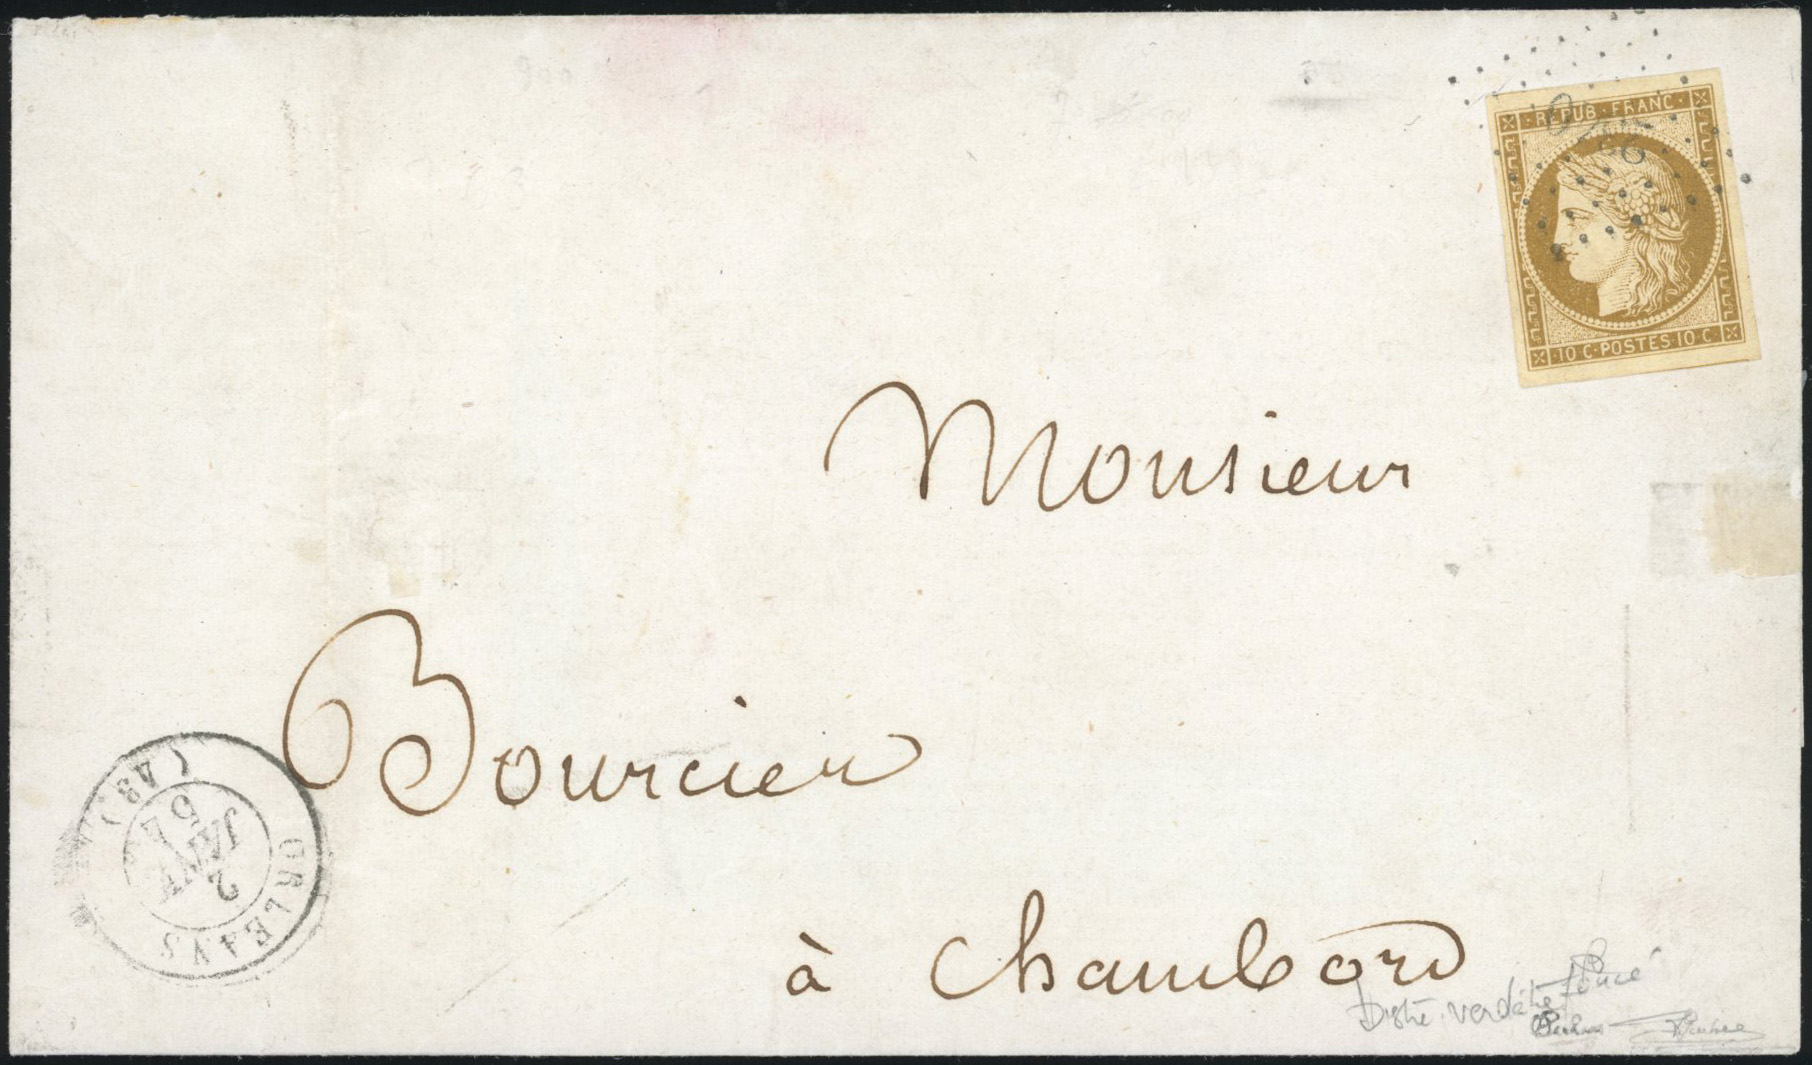 REPUB·FRANC
10 C·POSTES·10 C
Monsieur
Bourcier
à Chambord
ORLEANS
2
JANV
54
(43)
Bistre verdâtre foncé